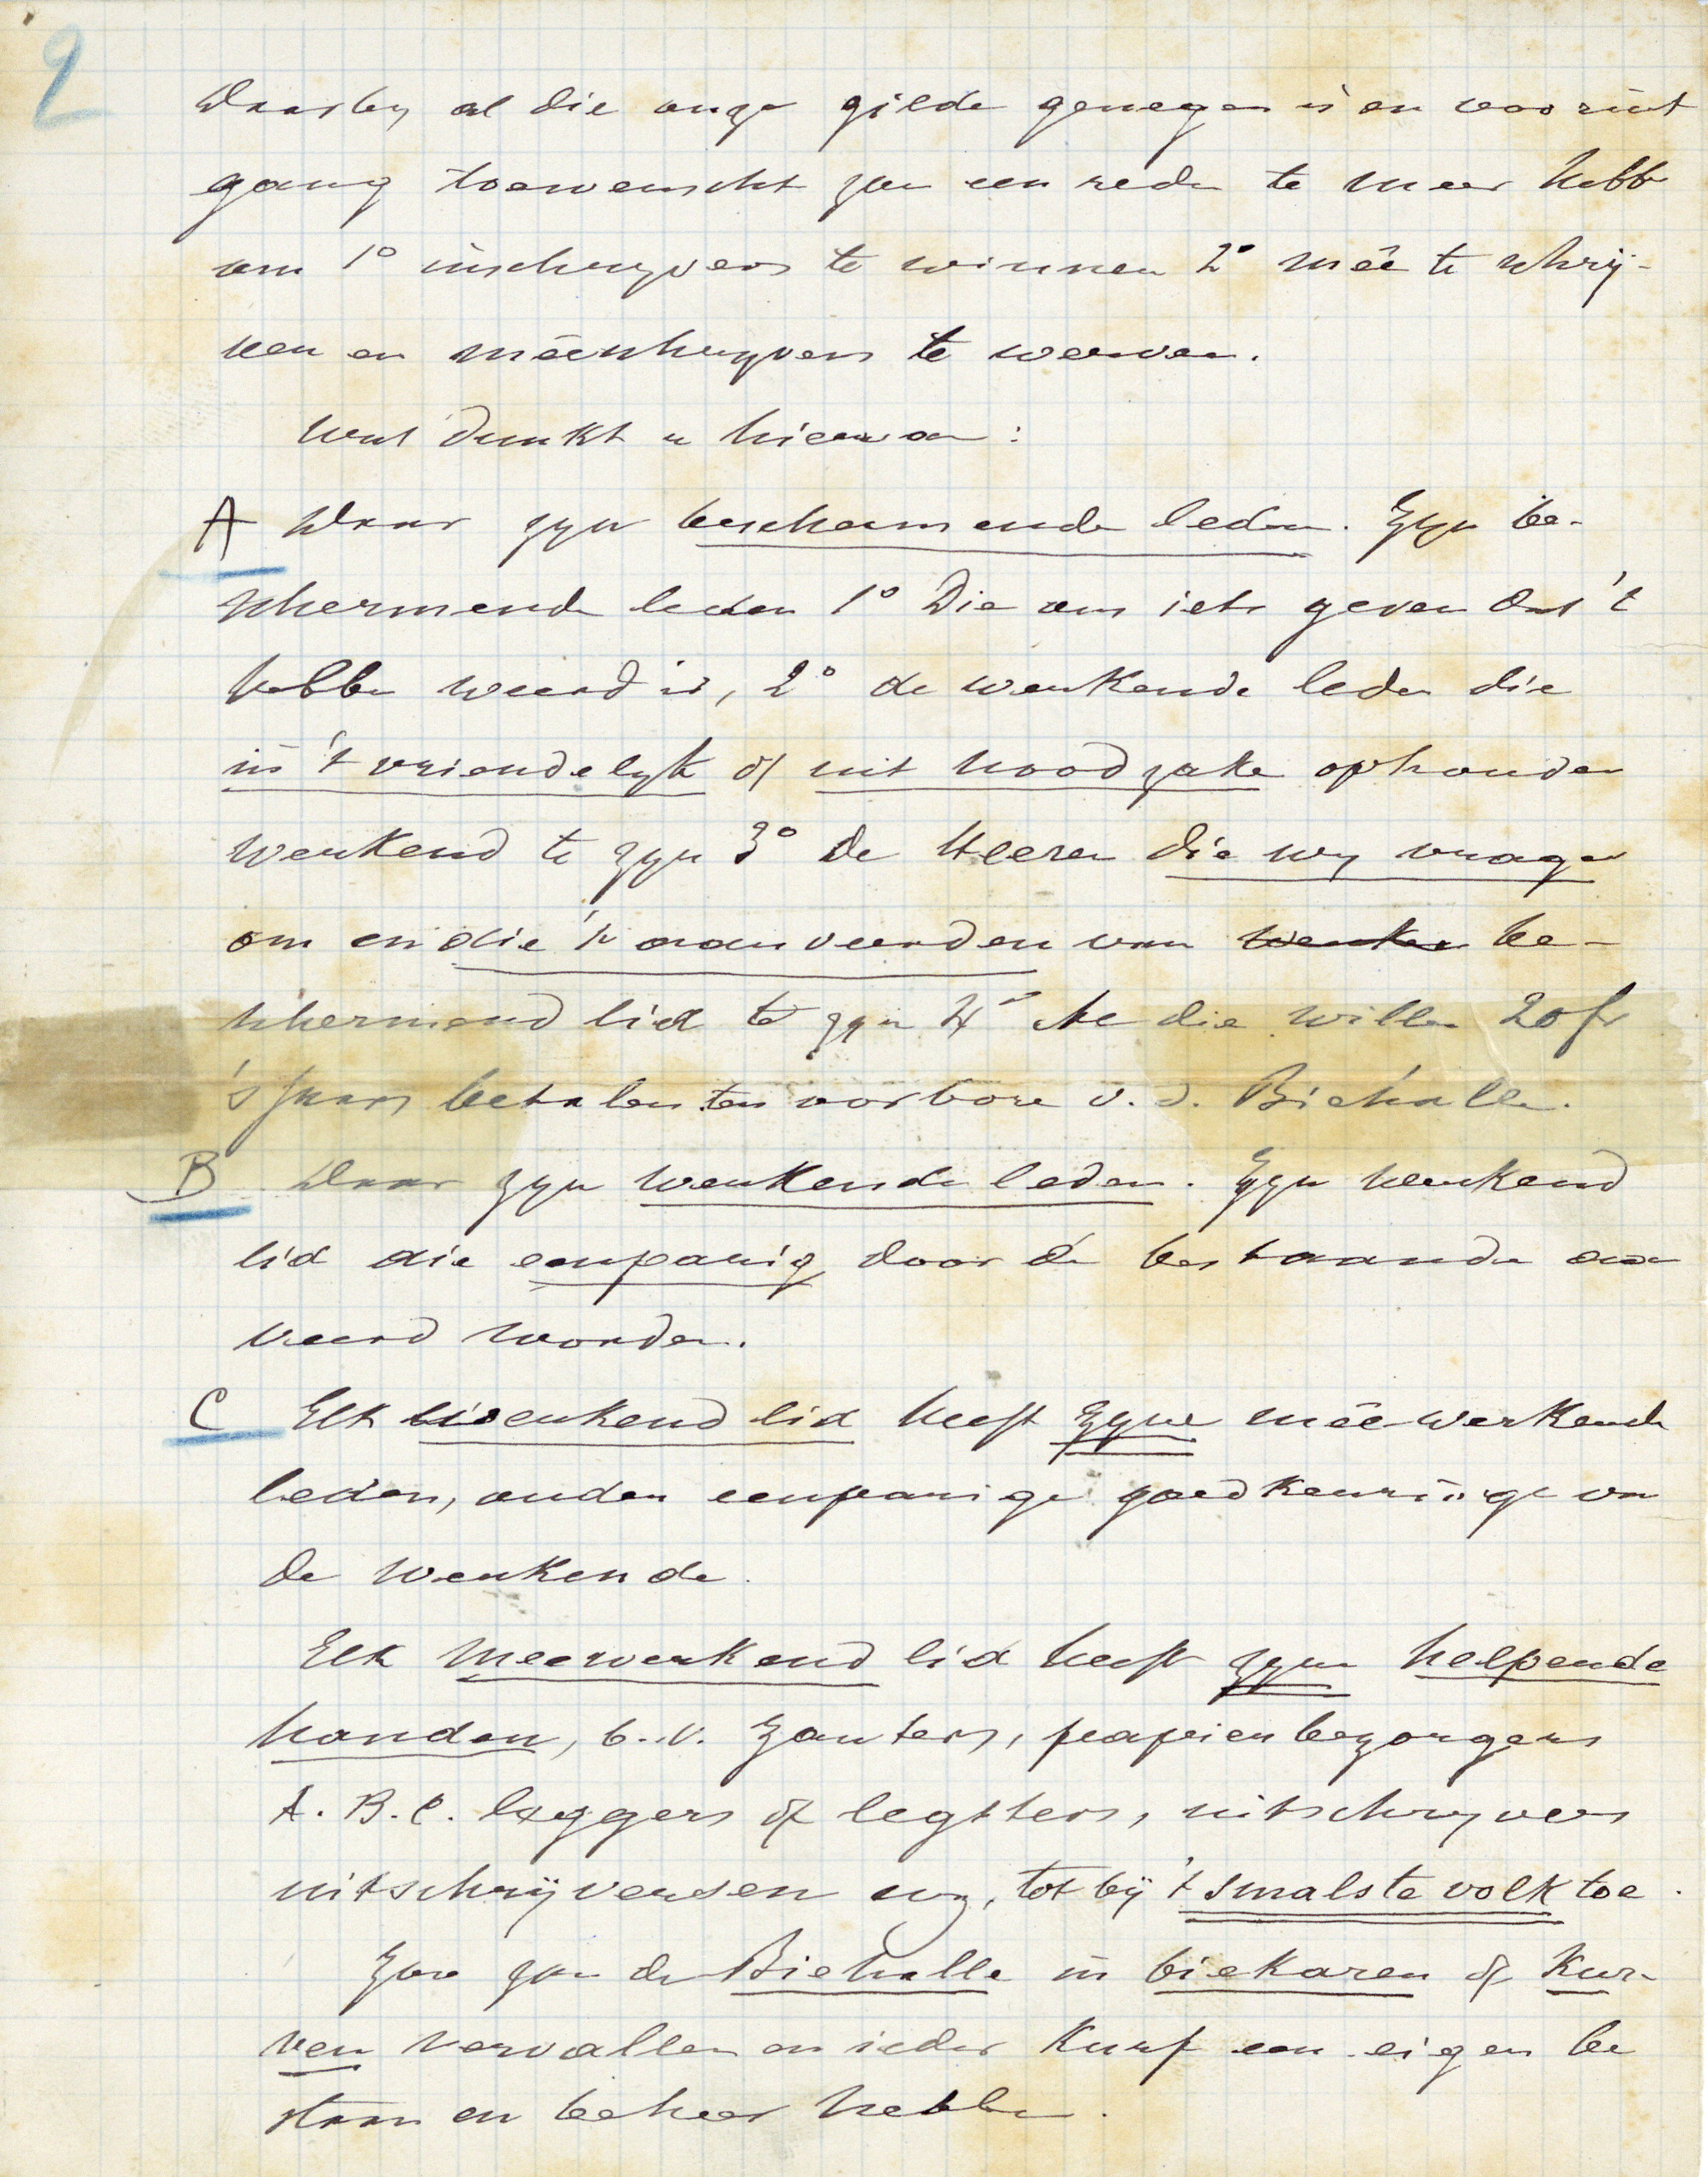 2
Daarby al die onze gilde genegen is en vooruit
gang toewenscht zou een reden te meer hebb
om 1° inschryvers te winnen 2° mêe te schrij-
ven en mêeschryvers te werven.
Wat dunkt u hiervan:
A Daar zyn beschermende leden. Zyn be-
schermende leden 1° Die ons iets geven dat 't
hebben weerd is, 2° de werkende leden die
in 't vriendelyk of uit noodzake ophouden
werkend te zyn 3° de Heeren die wy vragen
om en die 't aanveerden van werken be-
schermend lid te zyn 4° die willen 20 fr
's jaars betalen ten oorbore v. d. Biehalle.
B Daar zyn werkende leden. Zyn werkend
lid die eenparig door de bestaande aan
veerd worden.
C Elk werkend lid heeft zyne mêewerkende
leden, onder eenparige goedkeuringe van
de werkende.
Elk meewerkend lid heeft zyne helpende
handen, b.v. Zanters, papierbezorgers
A.B.C. leggers of legsters, uitschryvers
uitschrijversen enz, tot bij 't smalste volk toe.
Zoo zou de Biehalle in biekaren of kur-
ven vervallen en ieder kurf een eigen be
staan en beheer hebben.